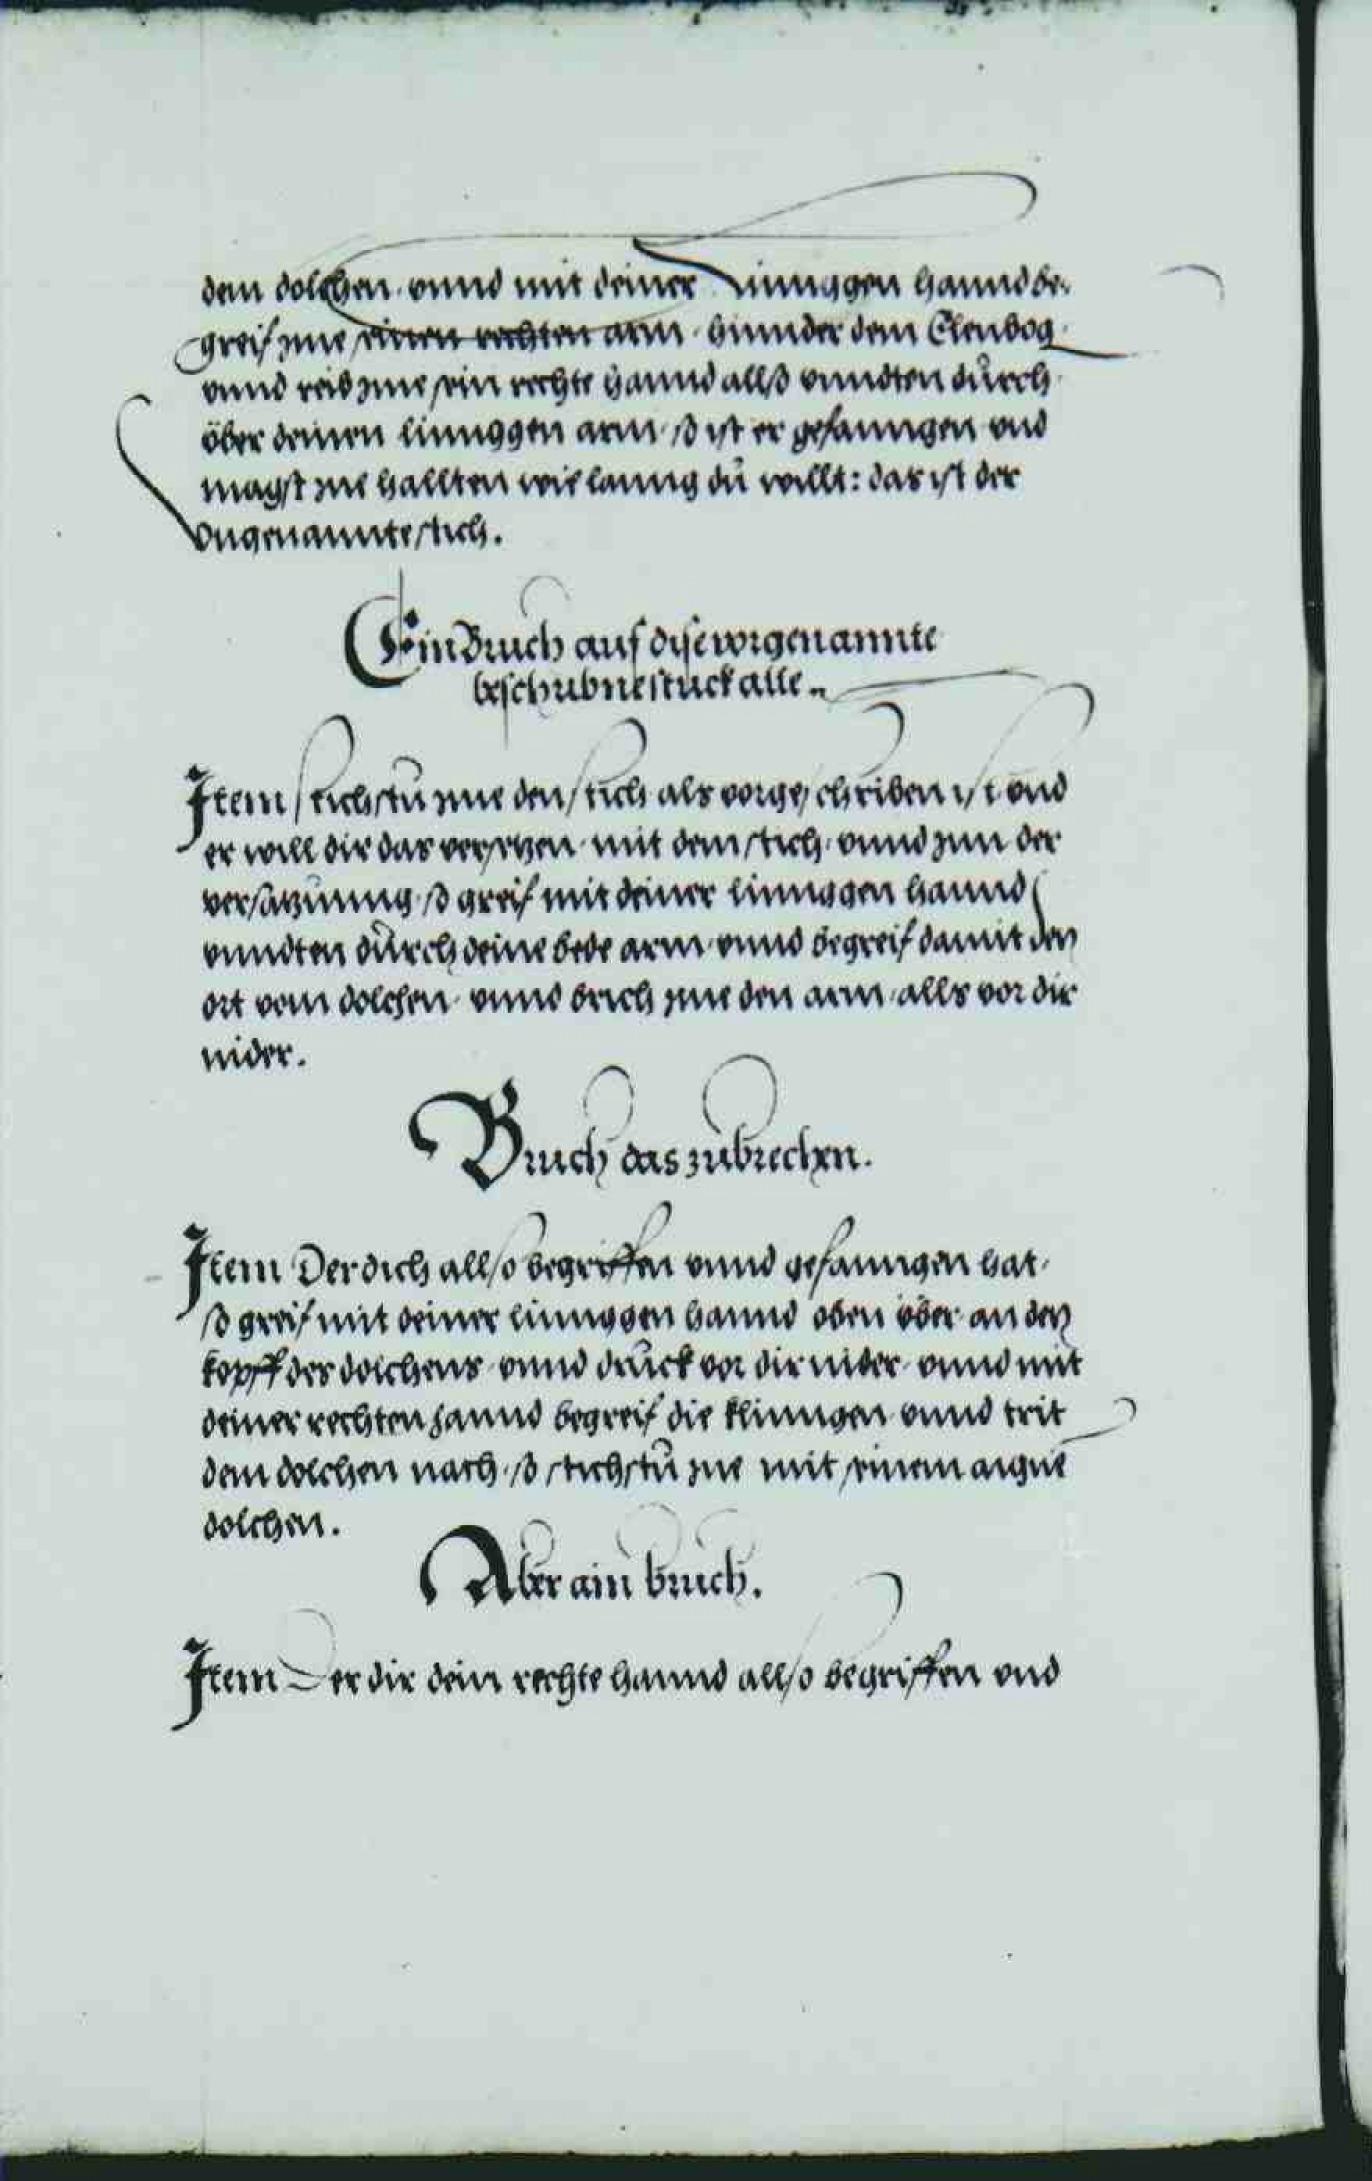 dem dolchen vnnd mit deiner linnggen hannd be-
greif jme seinen rechten arm hinnder dem Elenbog
vnnd reib jme sein rechte hannd allß vnndten durch
über deinen linnggen arm so ist er gefanngen vnd
magst jne hallten wie lanng du willt: das ist der
Vngenannte stich.
Ein Bruch auf dise vorgenannte
beschribne stuck alle
Item stichstu jme den stich als vorgeschriben ist vnd
er will dir das versetzen mit dem stich vnnd jnn der
versatzunng so greif mit deiner linnggen hannd
vnndten durch deine bede arm vnnd begreif damit den
ort vom dolchen vnnd brich jme den arm alls vor dir
nider.
Bruch das zubrechen.
Item Der dich allso begriffen vnnd gefanngen hat
so greif mit deiner linnggen hannd oben über an den
kopff des dolchens vnnd druck vor dir nider vnnd mit
deiner rechten hannd begreif die klinngen vnnd trit
dem dolchen nach so stichstu jne mit seinem aigne
dolchen.
Aber ain bruch.
Item Der dir dein rechte hannd allso begriffen vnd